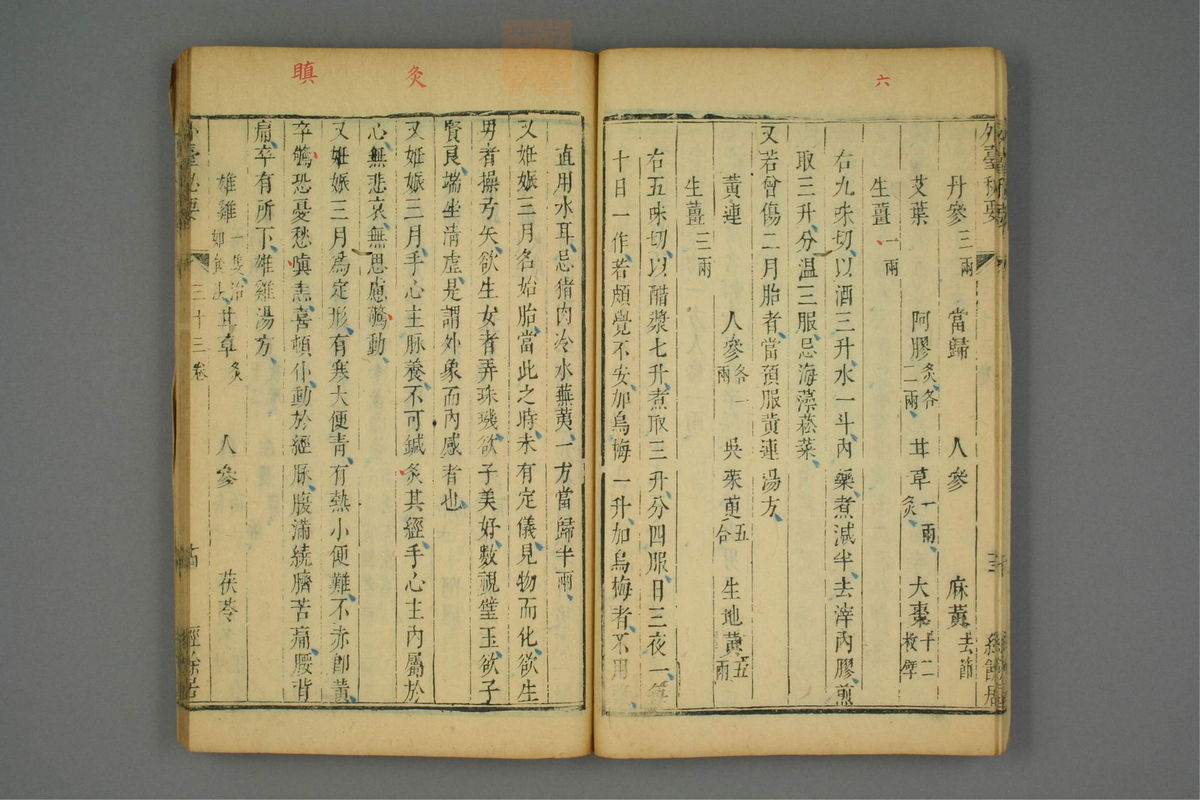 六
丹參三兩 當歸 人參 麻黃去節
艾葉 阿膠炙各二兩 甘草一兩炙 大棗十二枚擘
生薑一兩
右九味切以酒三升水一斗內藥煮減半去滓內膠煎
取三升分溫三服忌海藻菘菜
又若曾傷二月胎者當預服黃連湯方
黃連 人參各一兩 吳茱萸五合 生地黃五兩
生薑三兩
右五味切以醋漿七升煮取三升分四服日三夜一
十日一作若頗覺不安加烏梅一升加烏梅者不用
炙
瞋
直用水耳忌猪肉冷水蕪荑一方當歸半兩
又姙娠三月名始胎當此之時未有定儀見物而化欲生
男者操弓矢欲生女者弄珠璣欲子美好數視璧玉欲子
賢良端坐清虛是謂外象而內感者也
又姙娠三月手心主脉養不可鍼灸其經手心主內屬於
心無悲哀無思慮驚動
又姙娠三月為定形有寒大便青有熱小便難不赤卽黃
卒驚恐憂愁嗔恚喜頓仆動於經脉腹滿繞臍苦痛腰背
痛卒有所下雄雞湯方
雄雞一隻治如食法 甘草炙 人參 茯苓
外臺秘要
三十三卷